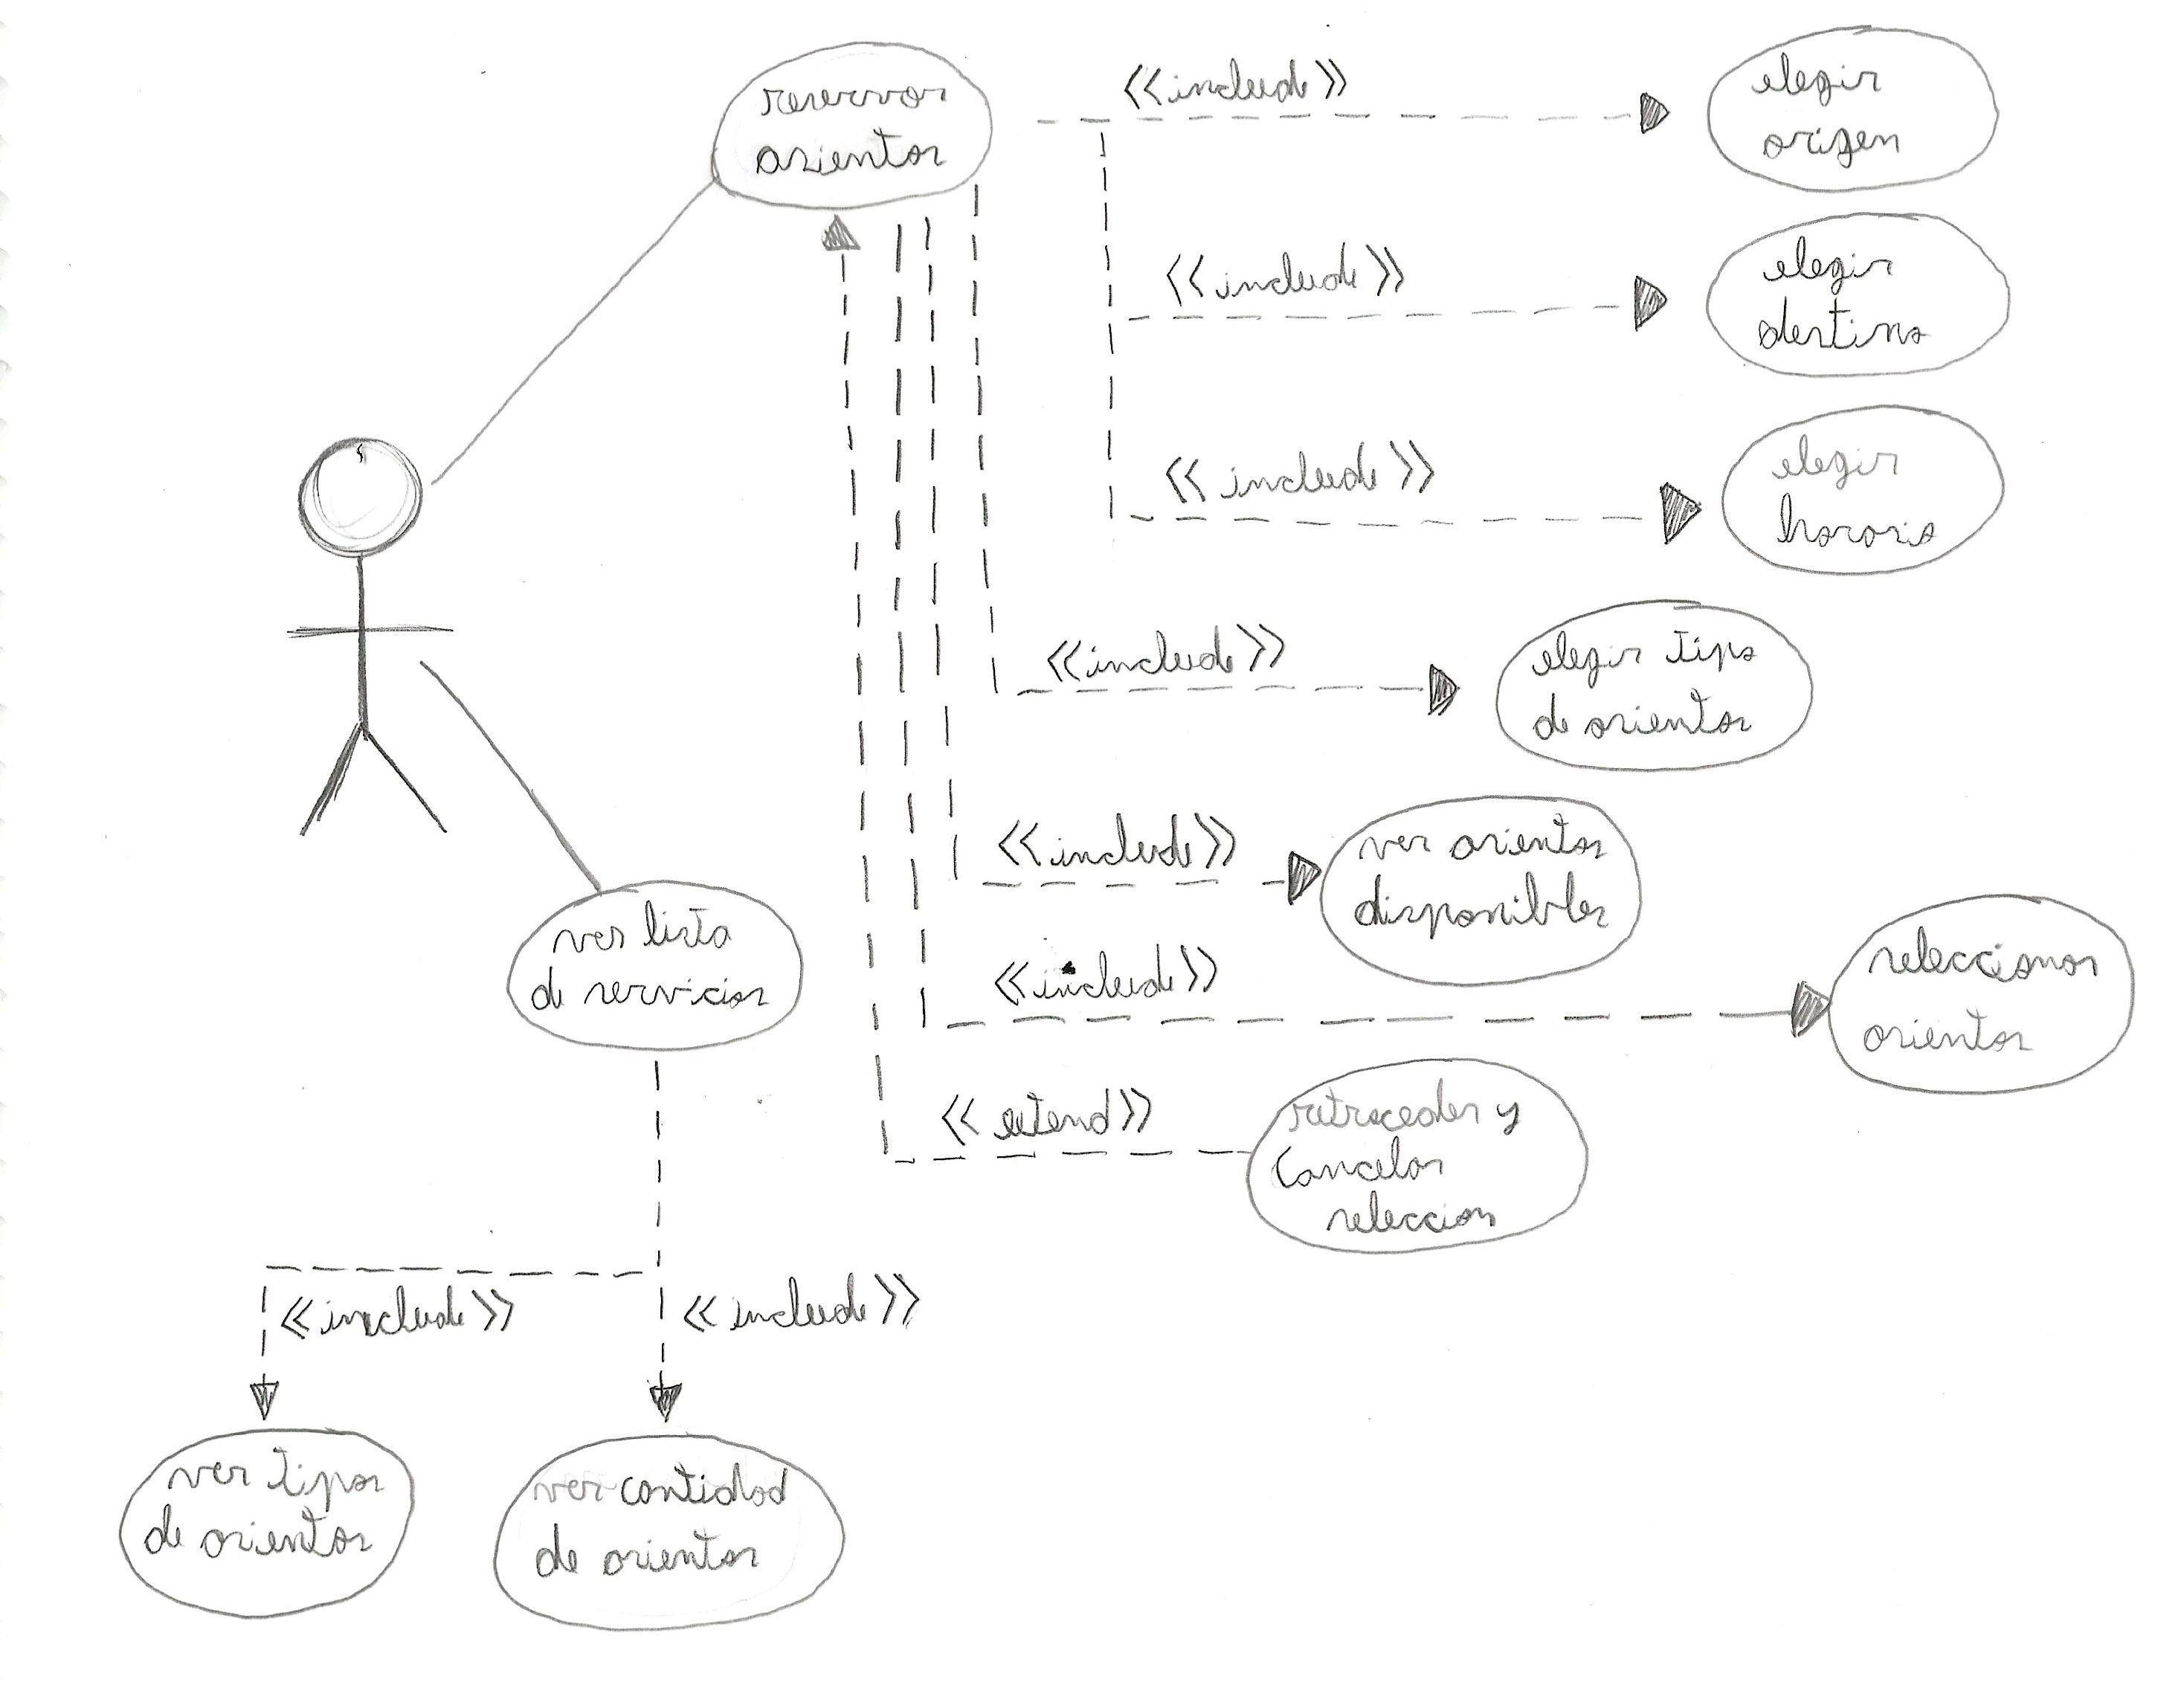 reservar
asientos
<<include>>
elegir
origen
<<include>>
elegir
destino
<<include>>
elegir
horario
<<include>>
elegir tipo
de asientos
<<include>>
ver asientos
disponibles
<<include>>
seleccionar
asientos
<<extend>>
retroceder y
cancelar
seleccion
ver lista
de servicios
<<include>>
<<include>>
ver tipos
de asientos
ver cantidad
de asientos